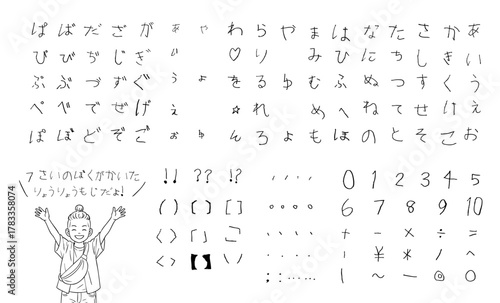 ぱ ば だ ざ が ぁ ゃ わ ら や ま は な た さ か あ
ぴ び ぢ じ ぎ ぃ ♡ り み ひ に ち し き い
ぷ ぶ づ ず ぐ ぅ ょ を る ゆ む ふ ぬ つ す く う
ぺ べ で ぜ げ ぇ ☆ れ め へ ね て せ け え
ぽ ぼ ど ぞ ご ぉ ゅ ん ろ ょ も ほ の と そ こ お
7さいのぼくがかいた
りょうりょうもじだよ!
!! ?? !?
0 1 2 3 4 5
( ) [ ] [ ]
6 7 8 9 10
< > 「 」
+ - × ÷ =
〈 〉 【 】 \ /
! ¥ * / ^
| ~ — ◎ ○
Adobe Stock | #1783358074